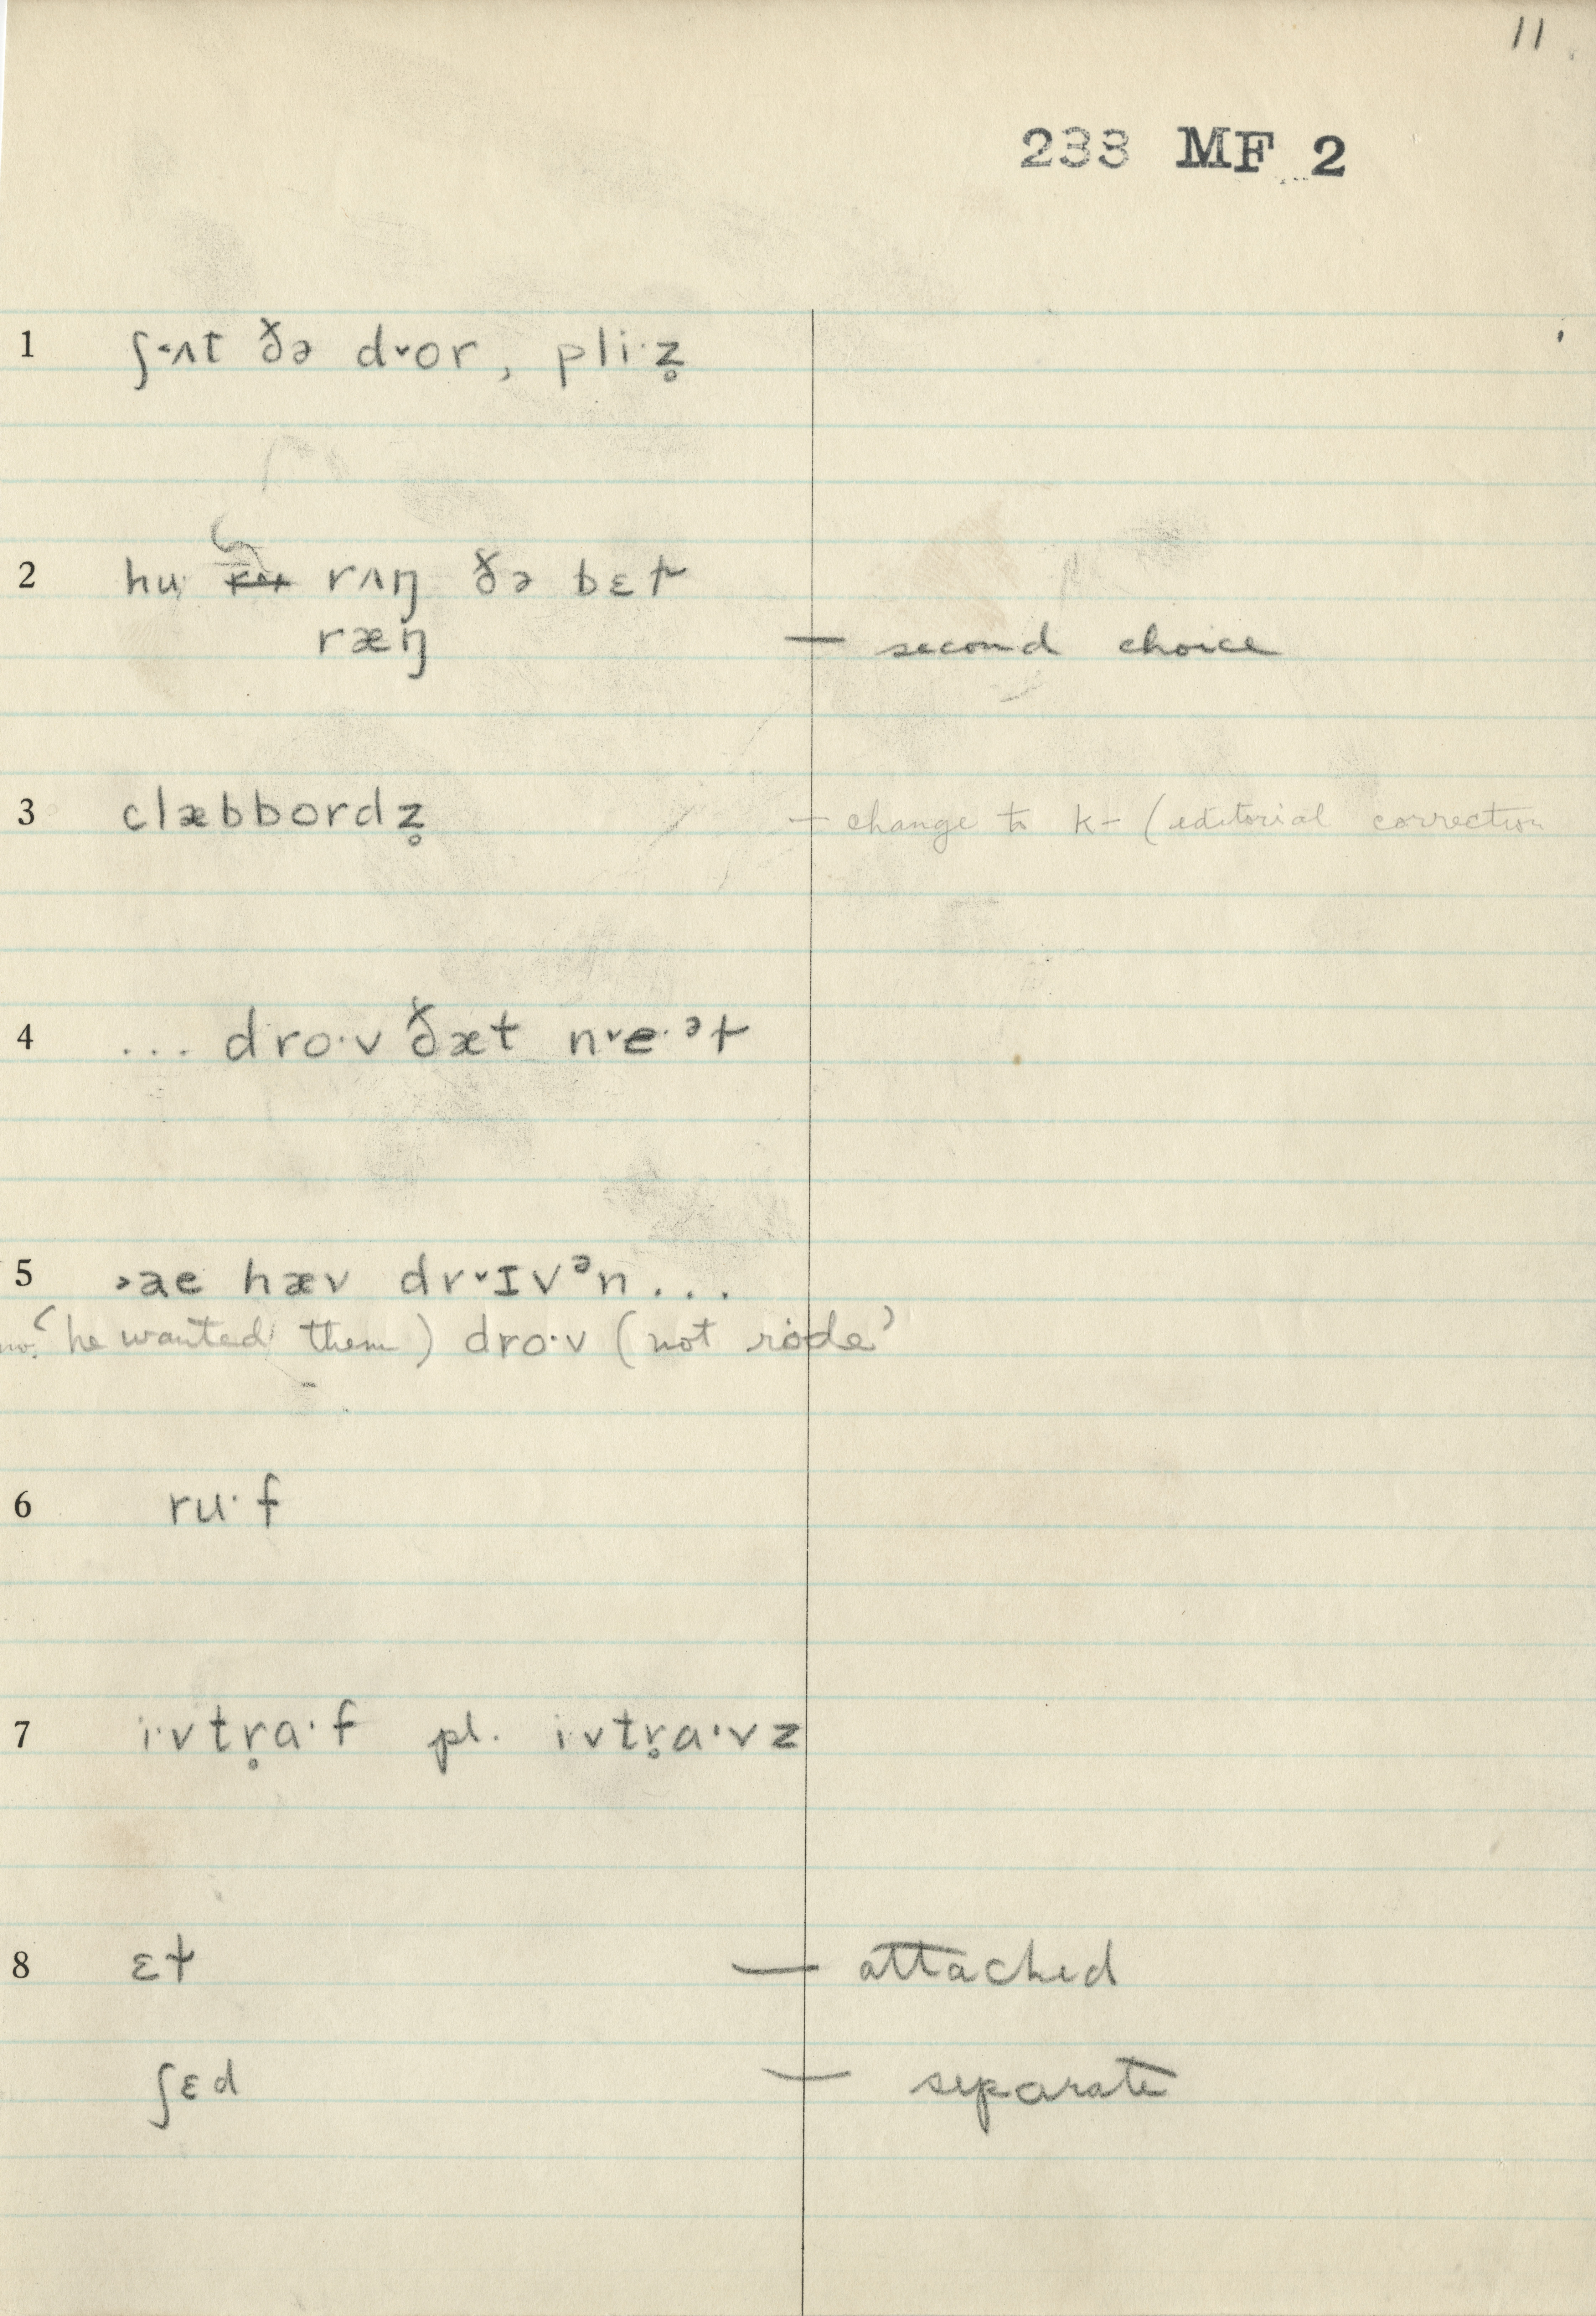 11
233 MF 2
1 ʃ˂ʌt ðə d˅or, pli·z̥
2 hu rʌŋ ðə bɛɫ
ræŋ — second choice
3 clæbbordz̥ — change to k- (editorial correction
4 ... dro·v ðæt n˅e·ᵊɫ
5 ˃ae hæv dr˅ɪvᵊn...
‘he wanted them) dro·v (not rode’
6 ru·f
7 i·vtr̥a·f pl. i·vtr̥a·vz
8 ɛɫ — attached
ʃɛd — separate